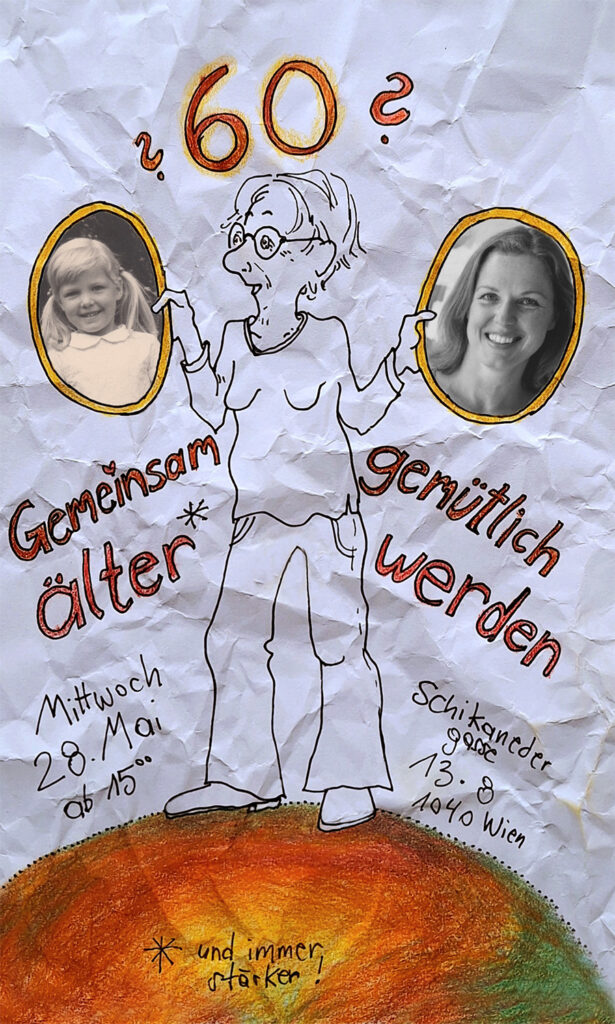 ? 60 ?
Gemeinsam gemütlich
älter* werden
Mittwoch
28. Mai
ab 15⁰⁰
Schikaneder
gasse
13.8
1040 Wien
* und immer
stärker!